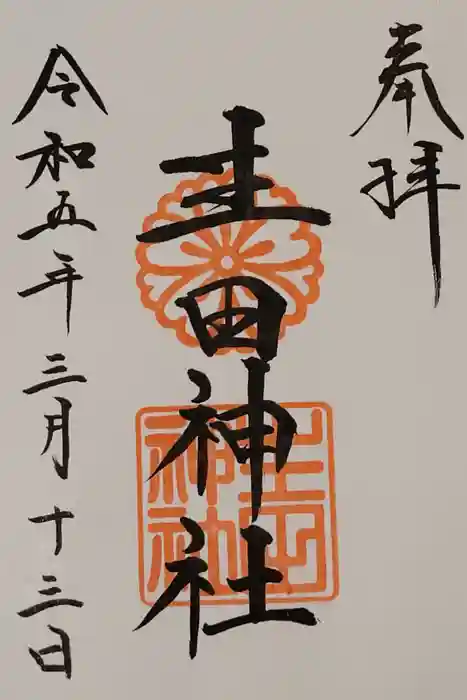 奉拝
生田神社
生田
神社
令和五年三月十三日